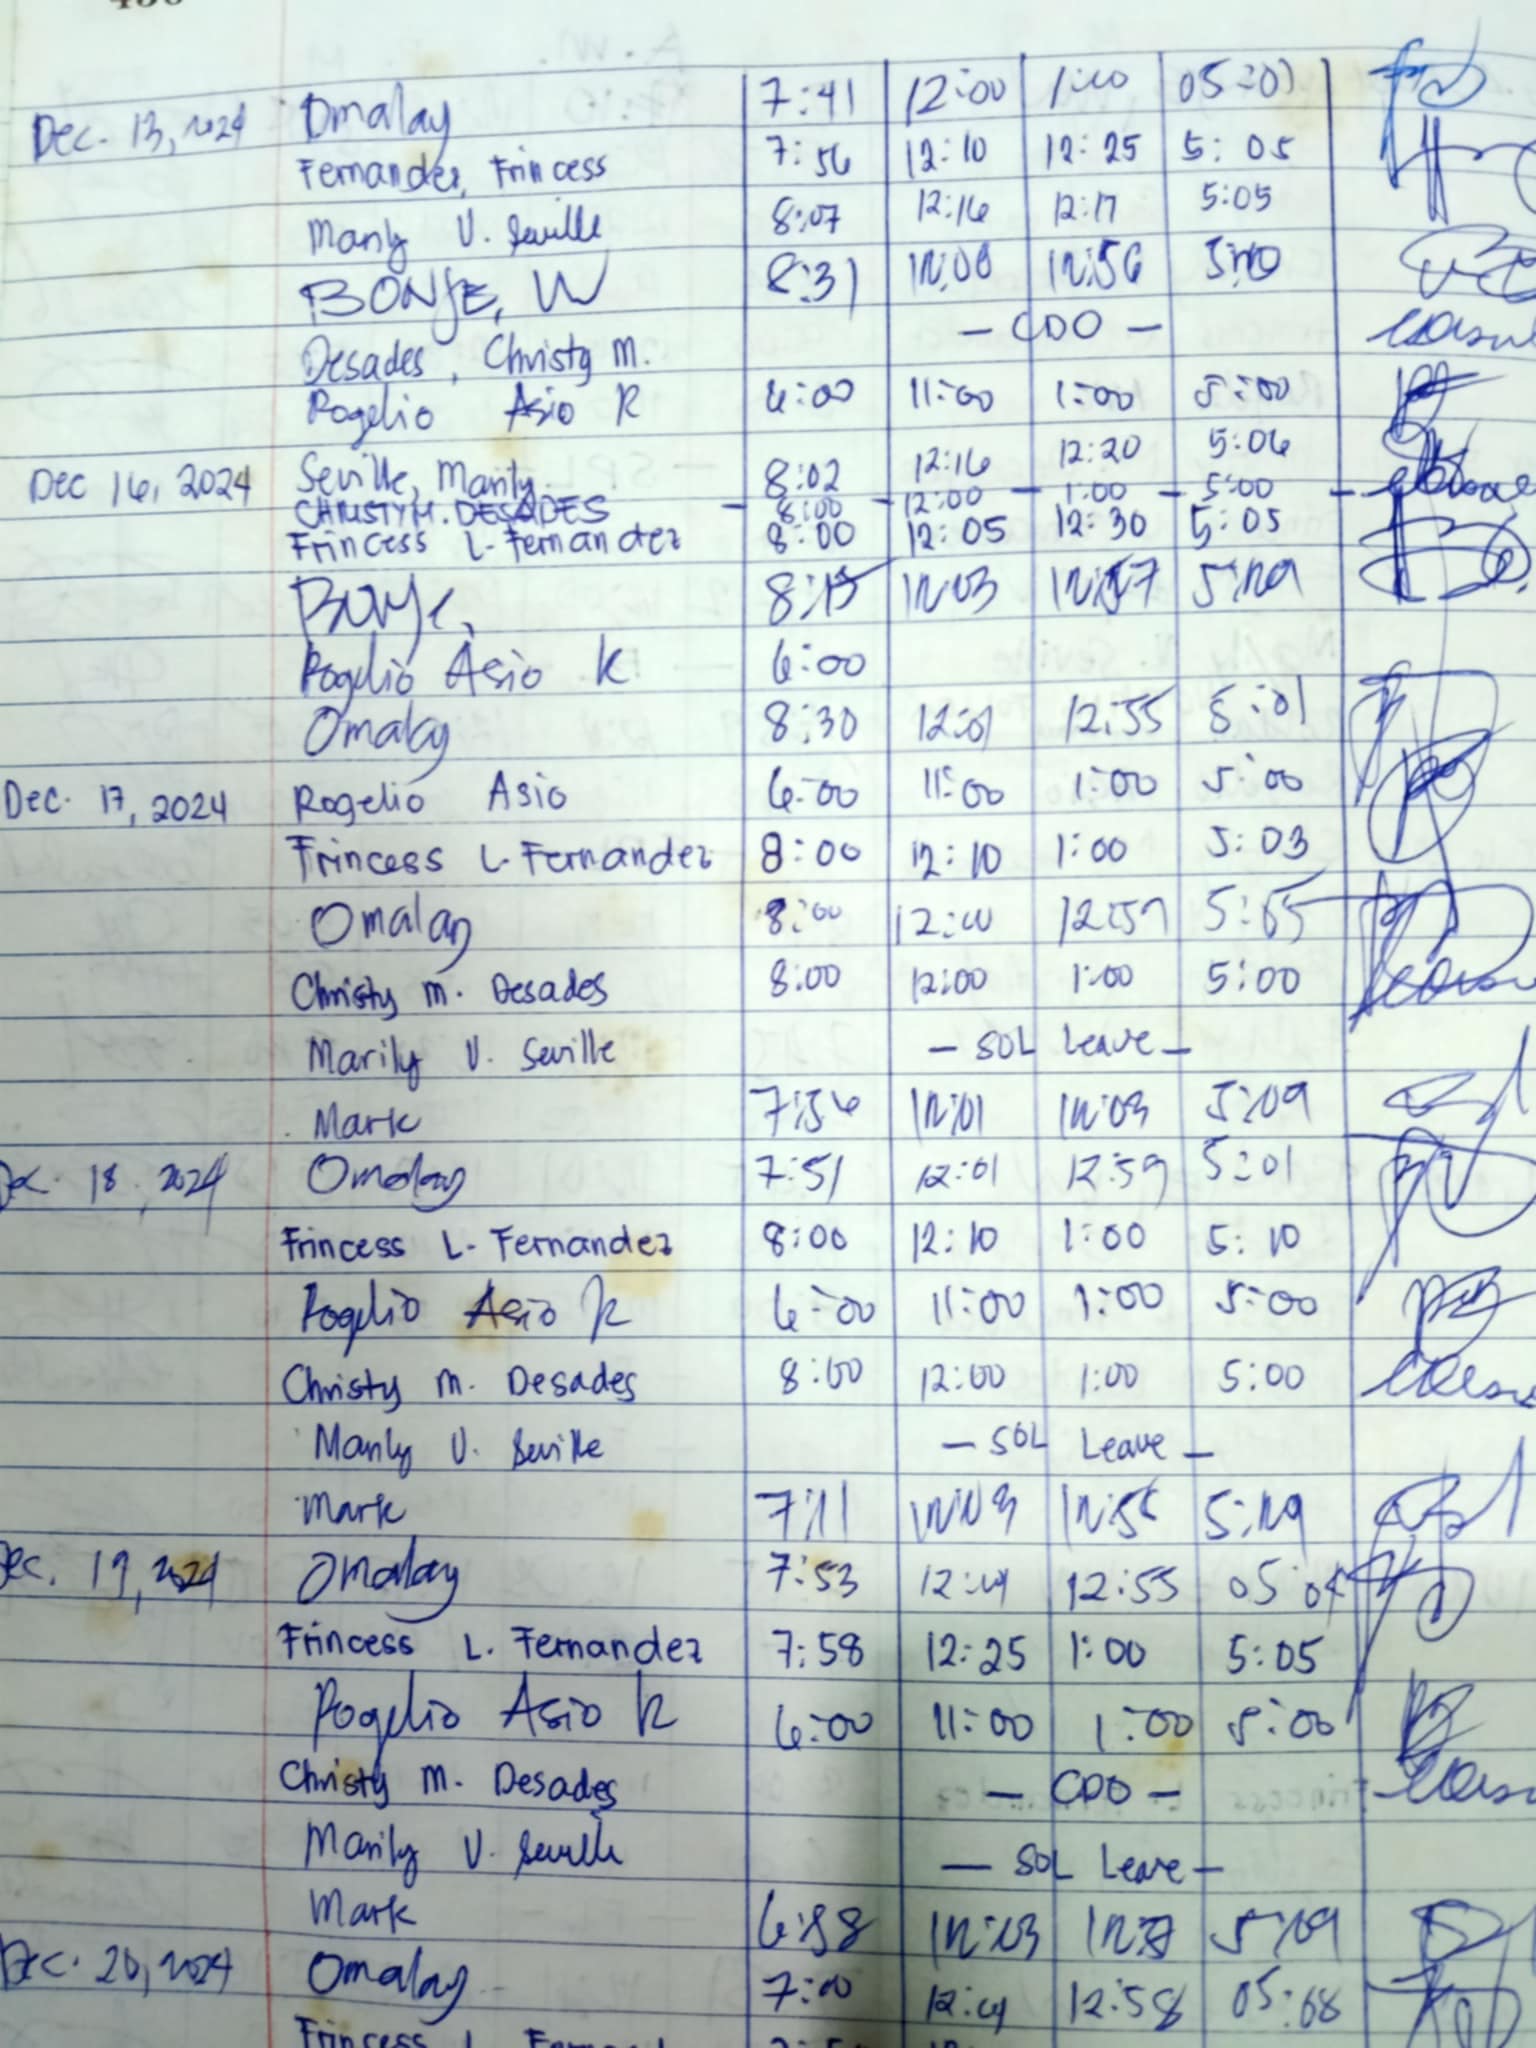 Dec. 13, 2024 Omalay 7:41 12:00 1:00 05:01
Fernandez, Frincess 7:56 12:10 12:25 5:05
Marily V. Seville 8:07 12:16 12:17 5:05
BONJE, W 8:31 12:00 12:56
Desades, Christy M. - CDO -
Rogelio Asio R 6:00 11:00 1:00 5:00
Dec 16, 2024 Seville, Marily 8:02 12:16 12:20 5:06
CHRISTY M. DESADES - 8:00 - 12:00 - 1:00 - 5:00 -
Frincess L. Fernandez 8:00 12:05 12:30 5:05
8:15 12:03 12:57
Rogelio Asio R 6:00
Omalay 8:30 12:01 12:55 5:01
Dec. 17, 2024 Rogelio Asio 6:00 11:00 1:00 5:00
Frincess L. Fernandez 8:00 12:10 1:00 5:03
Omalay 8:00 12:00 12:59 5:05
Christy M. Desades 8:00 12:00 1:00 5:00
Marily V. Seville - SOL Leave -
Mark 7:56 12:01 12:03 5:09
Dec. 18, 2024 Omalay 7:51 12:01 12:59 5:01
Frincess L. Fernandez 8:00 12:10 1:00 5:10
Rogelio Asio R 6:00 11:00 1:00 5:00
Christy M. Desades 8:00 12:00 1:00 5:00
Marily V. Seville - SOL Leave -
Mark 7:11 12:03
Dec. 19, 2024 Omalay 7:53 12:01 12:55
Frincess L. Fernandez 7:58 12:25 1:00 5:05
Rogelio Asio R 6:00 11:00 1:00 5:00
Christy M. Desades - CDO -
Marily V. Seville - SOL Leave -
Mark 6:58 12:03 5:09
Dec. 20, 2024 Omalay 7:00 12:01 12:58 05:08
Frincess L. Fernandez